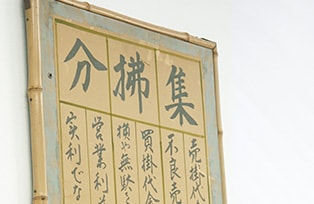 集拂分
売掛代
不良売
買掛代金
無駄
営業利
実利でな